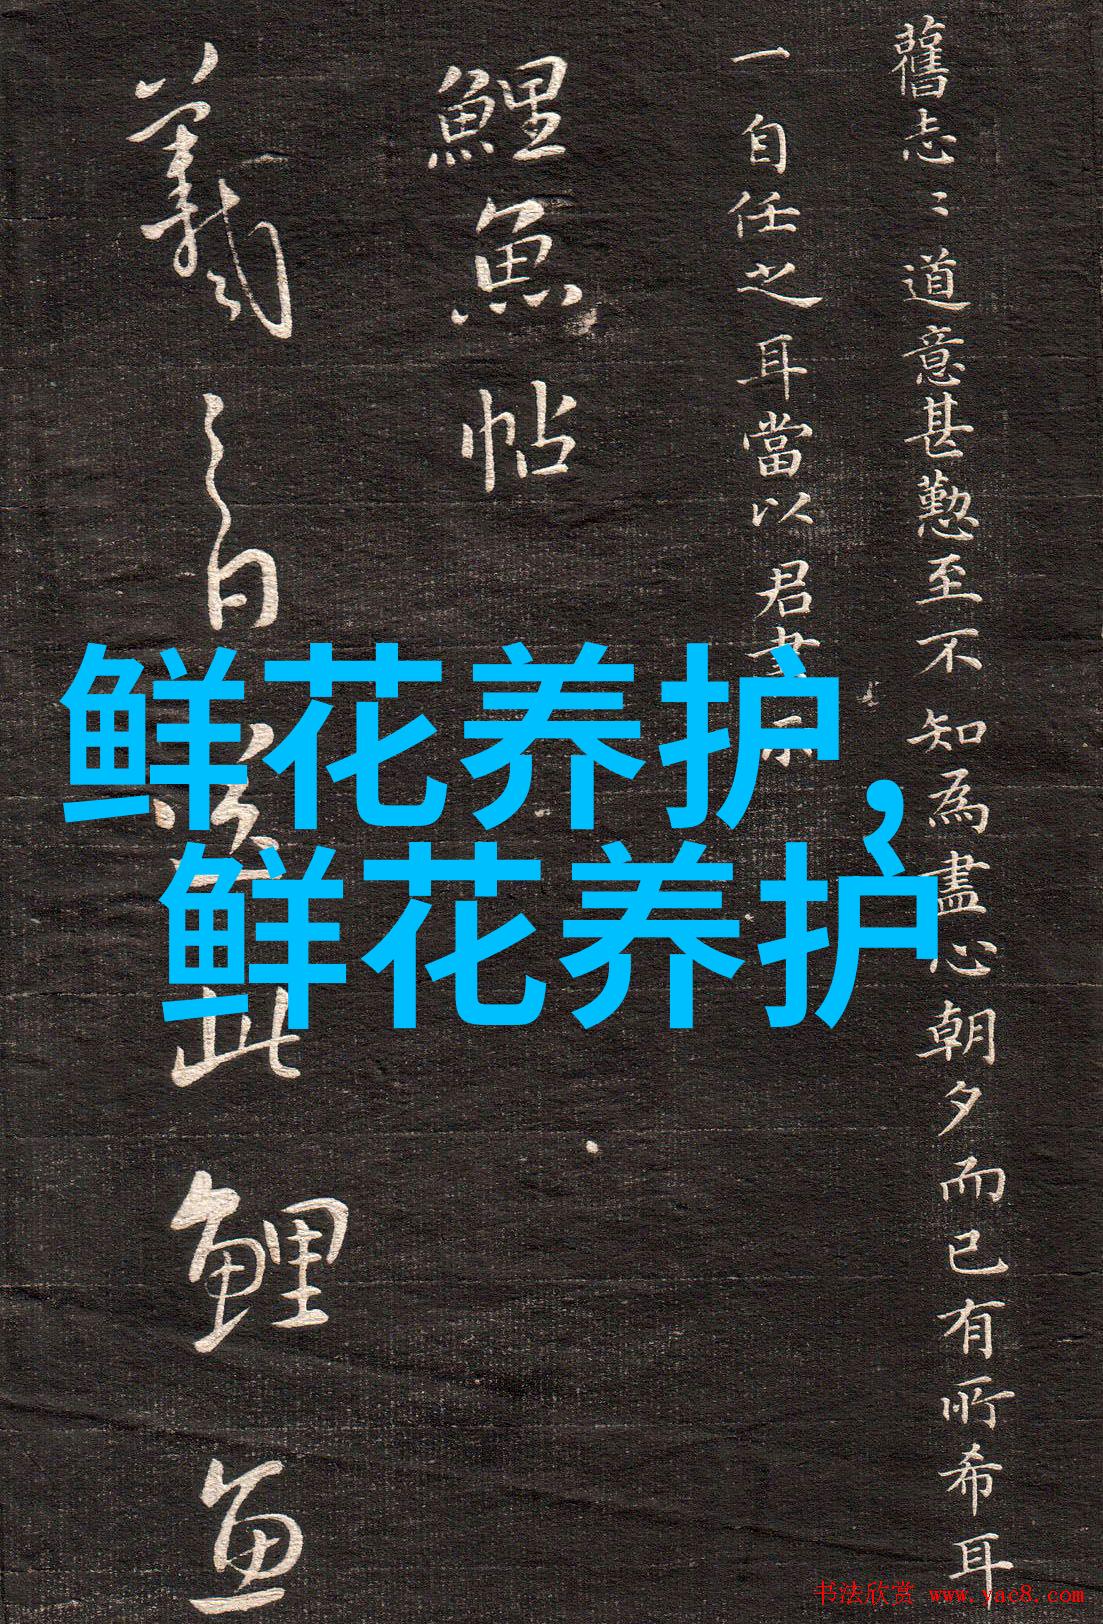 舊志〻道意甚懃至不知為盡心朝夕而已有所希耳
一自任之耳當以君書示
鯉魚帖
羲之白
此鯉魚
鲜花养护,
鲜花养护
书法欣赏 www.yac8.com